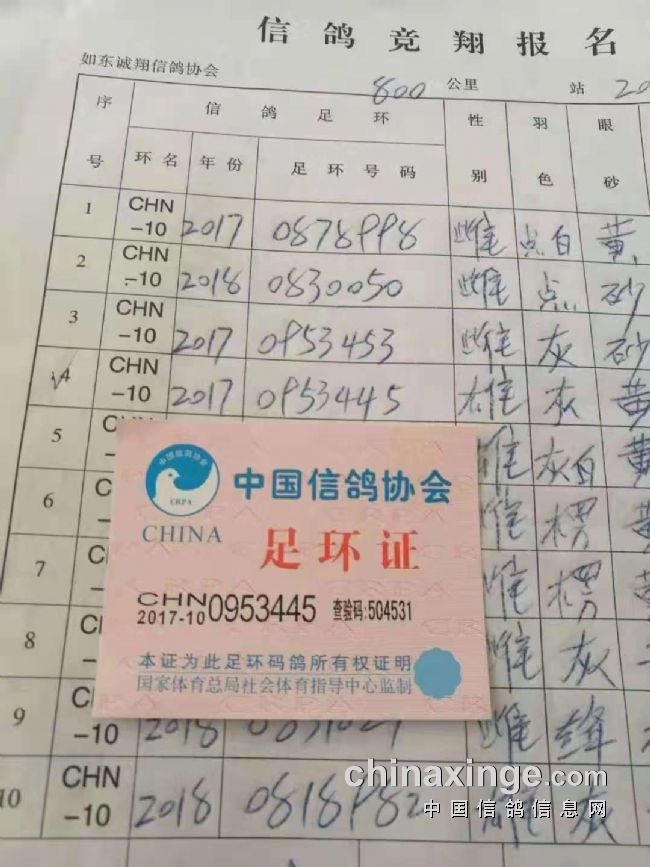 信鸽竞翔报名
如东诚翔信鸽协会
800 公里 站 20
序号 信鸽足环 性别 羽色 眼砂
环名 年份 足环号码
1 CHN-10 2017 0878998 雌 点白 黄
2 CHN-10 2018 0830050 雌 点 砂
3 CHN-10 2017 0953453 雌 灰 砂
√4 CHN-10 2017 0953445 雄 灰 黄
5 灰白 黄
6 C -10
7 C -10
8 CH -10 雌 灰
9 CH -10 2018 雌 绛
10 CHN-10 2018 081898 雌 灰
中国信鸽协会
CRPA
CHINA
中国信鸽协会
足环证
CHN
2017-10 0953445 查验码:504531
本证为此足环码鸽所有权证明
国家体育总局社会体育指导中心监制
chinaxinge.com
中国信鸽信息网